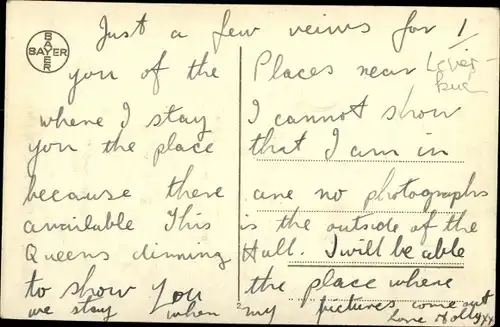 BAYER
BAYER
Just a few veiws for 1/
you of the Places near Lever-
kusen
where I stay I cannot show
you the place that I am in
because there are no photographs
available This is the outside of the
Queens dinning Hall. I will be able
to show you the place where
we stay when my pictures come out
love Holly xx